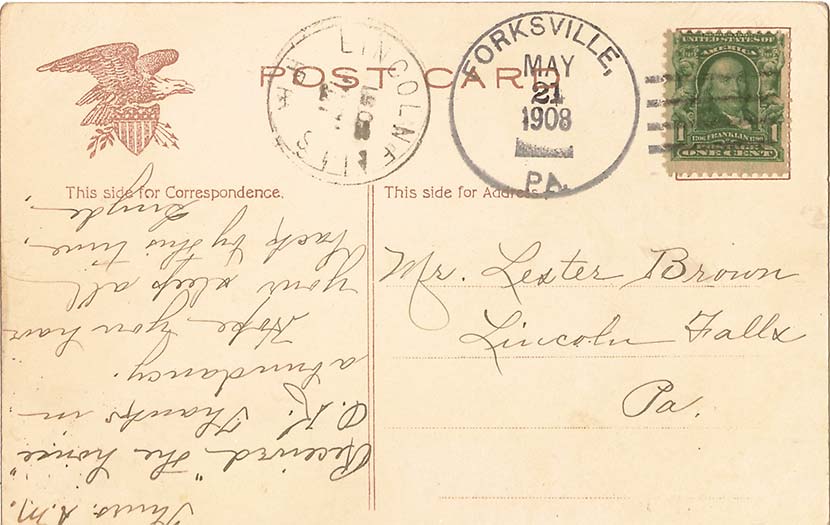 POST CARD
LINCOLN FALLS
FORKSVILLE,
MAY
21
1908
PA.
UNITED STATES
OF AMERICA
1 1
1706 FRANKLIN 1790
POSTAGE
ONE CENT
This side for Correspondence.
This side for Address.
Mr. Lester Brown
Lincoln Falls
Pa.
Thurs. A.M.
Received "the
O.K. Thanks in
abundancy.
Hope you have
your sleep all
back by this time.